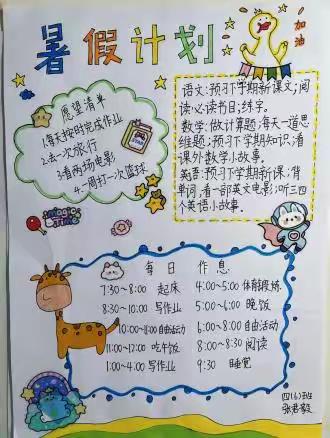 暑假计划
加油
愿望清单
1.每天按时完成作业
2.去一次旅行
3.看两场电影
4.一周打一次篮球
语文:预习下学期新课文;阅
读必读书目;练字。
数学:做计算题;每天一道思
维题;预习下学期知识;看
课外数学小故事。
英语:预习下学期新课;背
单词;看一部英文电影;听三四
个英语小故事。
magic
TIME
每日作息
7:30~8:00 起床
8:30~10:00 写作业
10:00~11:00 自由活动
11:00~12:00 吃午饭
1:00~4:00 写作业
4:00~5:00 体育锻炼
5:00~6:00 晚饭
6:00~8:00 自由活动
8:00~8:30 阅读
9:30 睡觉
四(6)班
张君毅